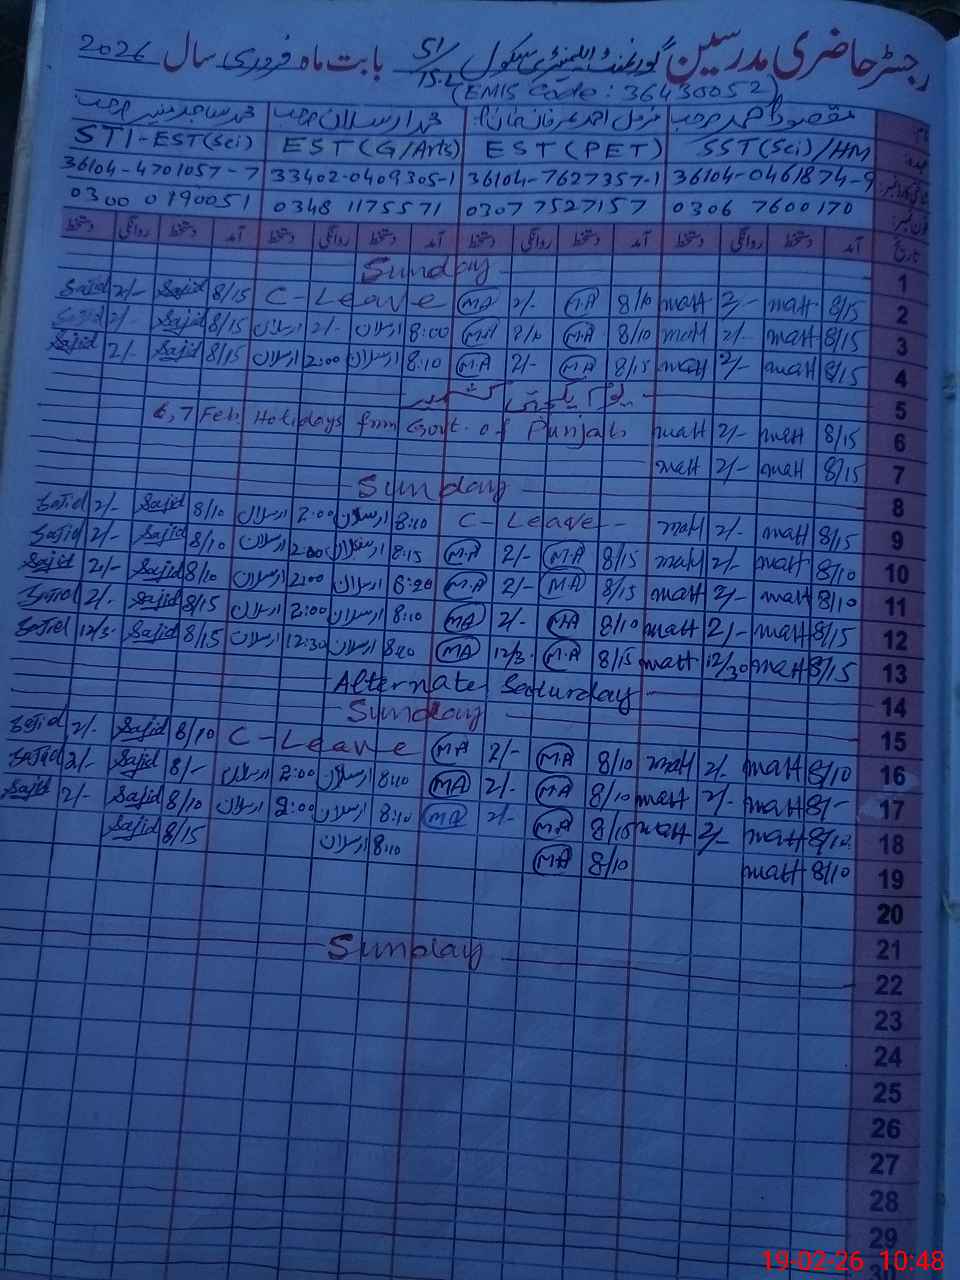 رجسٹر حاضری مدرسین گورنمنٹ ایلیمنٹری سکول 51/15.L بابت ماہ فروری سال 2026
(EMIS Code : 36430052)
مقصود احمد صاحب
SST(Sci)/HM EST(PET) EST(G/Arts) STI-EST(Sci)
36104-0461874-9 36104-7627357-1 33402-0409305-1 36104-4701057-7
0306 7600170 0307 7527157 0348 1175571 0300 0190051
تاریخ آمد دستخط روانگی دستخط آمد دستخط روانگی دستخط آمد دستخط روانگی دستخط آمد دستخط روانگی دستخط
1 Sunday
2 8/15 maH 2/- maH 8/10 MA 2/- MA C-Leave 8/15 Sajid 2/- Sajid
3 8/15 maH 2/- maH 8/10 MA MA 8:00 ارسلان 2/- ارسلان 8/15 Sajid 2/- Sajid
4 8/15 maH 2/- maH 8/15 MA 2/- MA 8:10 ارسلان 2:00 ارسلان 8/15 Sajid 2/- Sajid
5 یوم یکجہتی کشمیر
6 8/15 maH 2/- maH 6,7 Feb Holidays from Govt. of Punjab
7 8/15 maH 2/- maH
8 Sunday
9 8/15 maH 2/- maH C-Leave 8:10 ارسلان 2:00 ارسلان 8/10 Sajid 2/- Sajid
10 8/10 maH 2/- maH 8/15 MA 2/- MA 8:15 ارسلان 2:00 ارسلان 8/10 Sajid 2/- Sajid
11 8/10 maH 2/- maH 8/15 MA 2/- MA ارسلان 2:00 ارسلان 8/10 Sajid 2/- Sajid
12 8/15 maH 2/- maH 8/10 MA 2/- MA 8:10 ارسلان 2:00 ارسلان 8/15 Sajid 2/- Sajid
13 8/15 maH 12/30 maH 8/15 MA 12/3. MA ارسلان 12:30 ارسلان 8/15 Sajid 12/3. Sajid
14 Alternate Saturday
15 Sunday
16 8/10 maH 2/- maH 8/10 MA 2/- MA C-Leave 8/10 Sajid 2/- Sajid
17 8/- maH 2/- maH 8/10 MA 2/- MA 8:10 ارسلان 2:00 ارسلان 8/- Sajid 2/- Sajid
18 8/10 maH 2/- maH 8/15 MA 2/- MA 8:10 ارسلان 2:00 ارسلان 8/10 Sajid 2/- Sajid
19 8/10 maH 8/10 MA 8:10 ارسلان 8/15 Sajid
20
21
22 Sunday
23
24
25
26
27
28
29
30
19-02-26 10:48